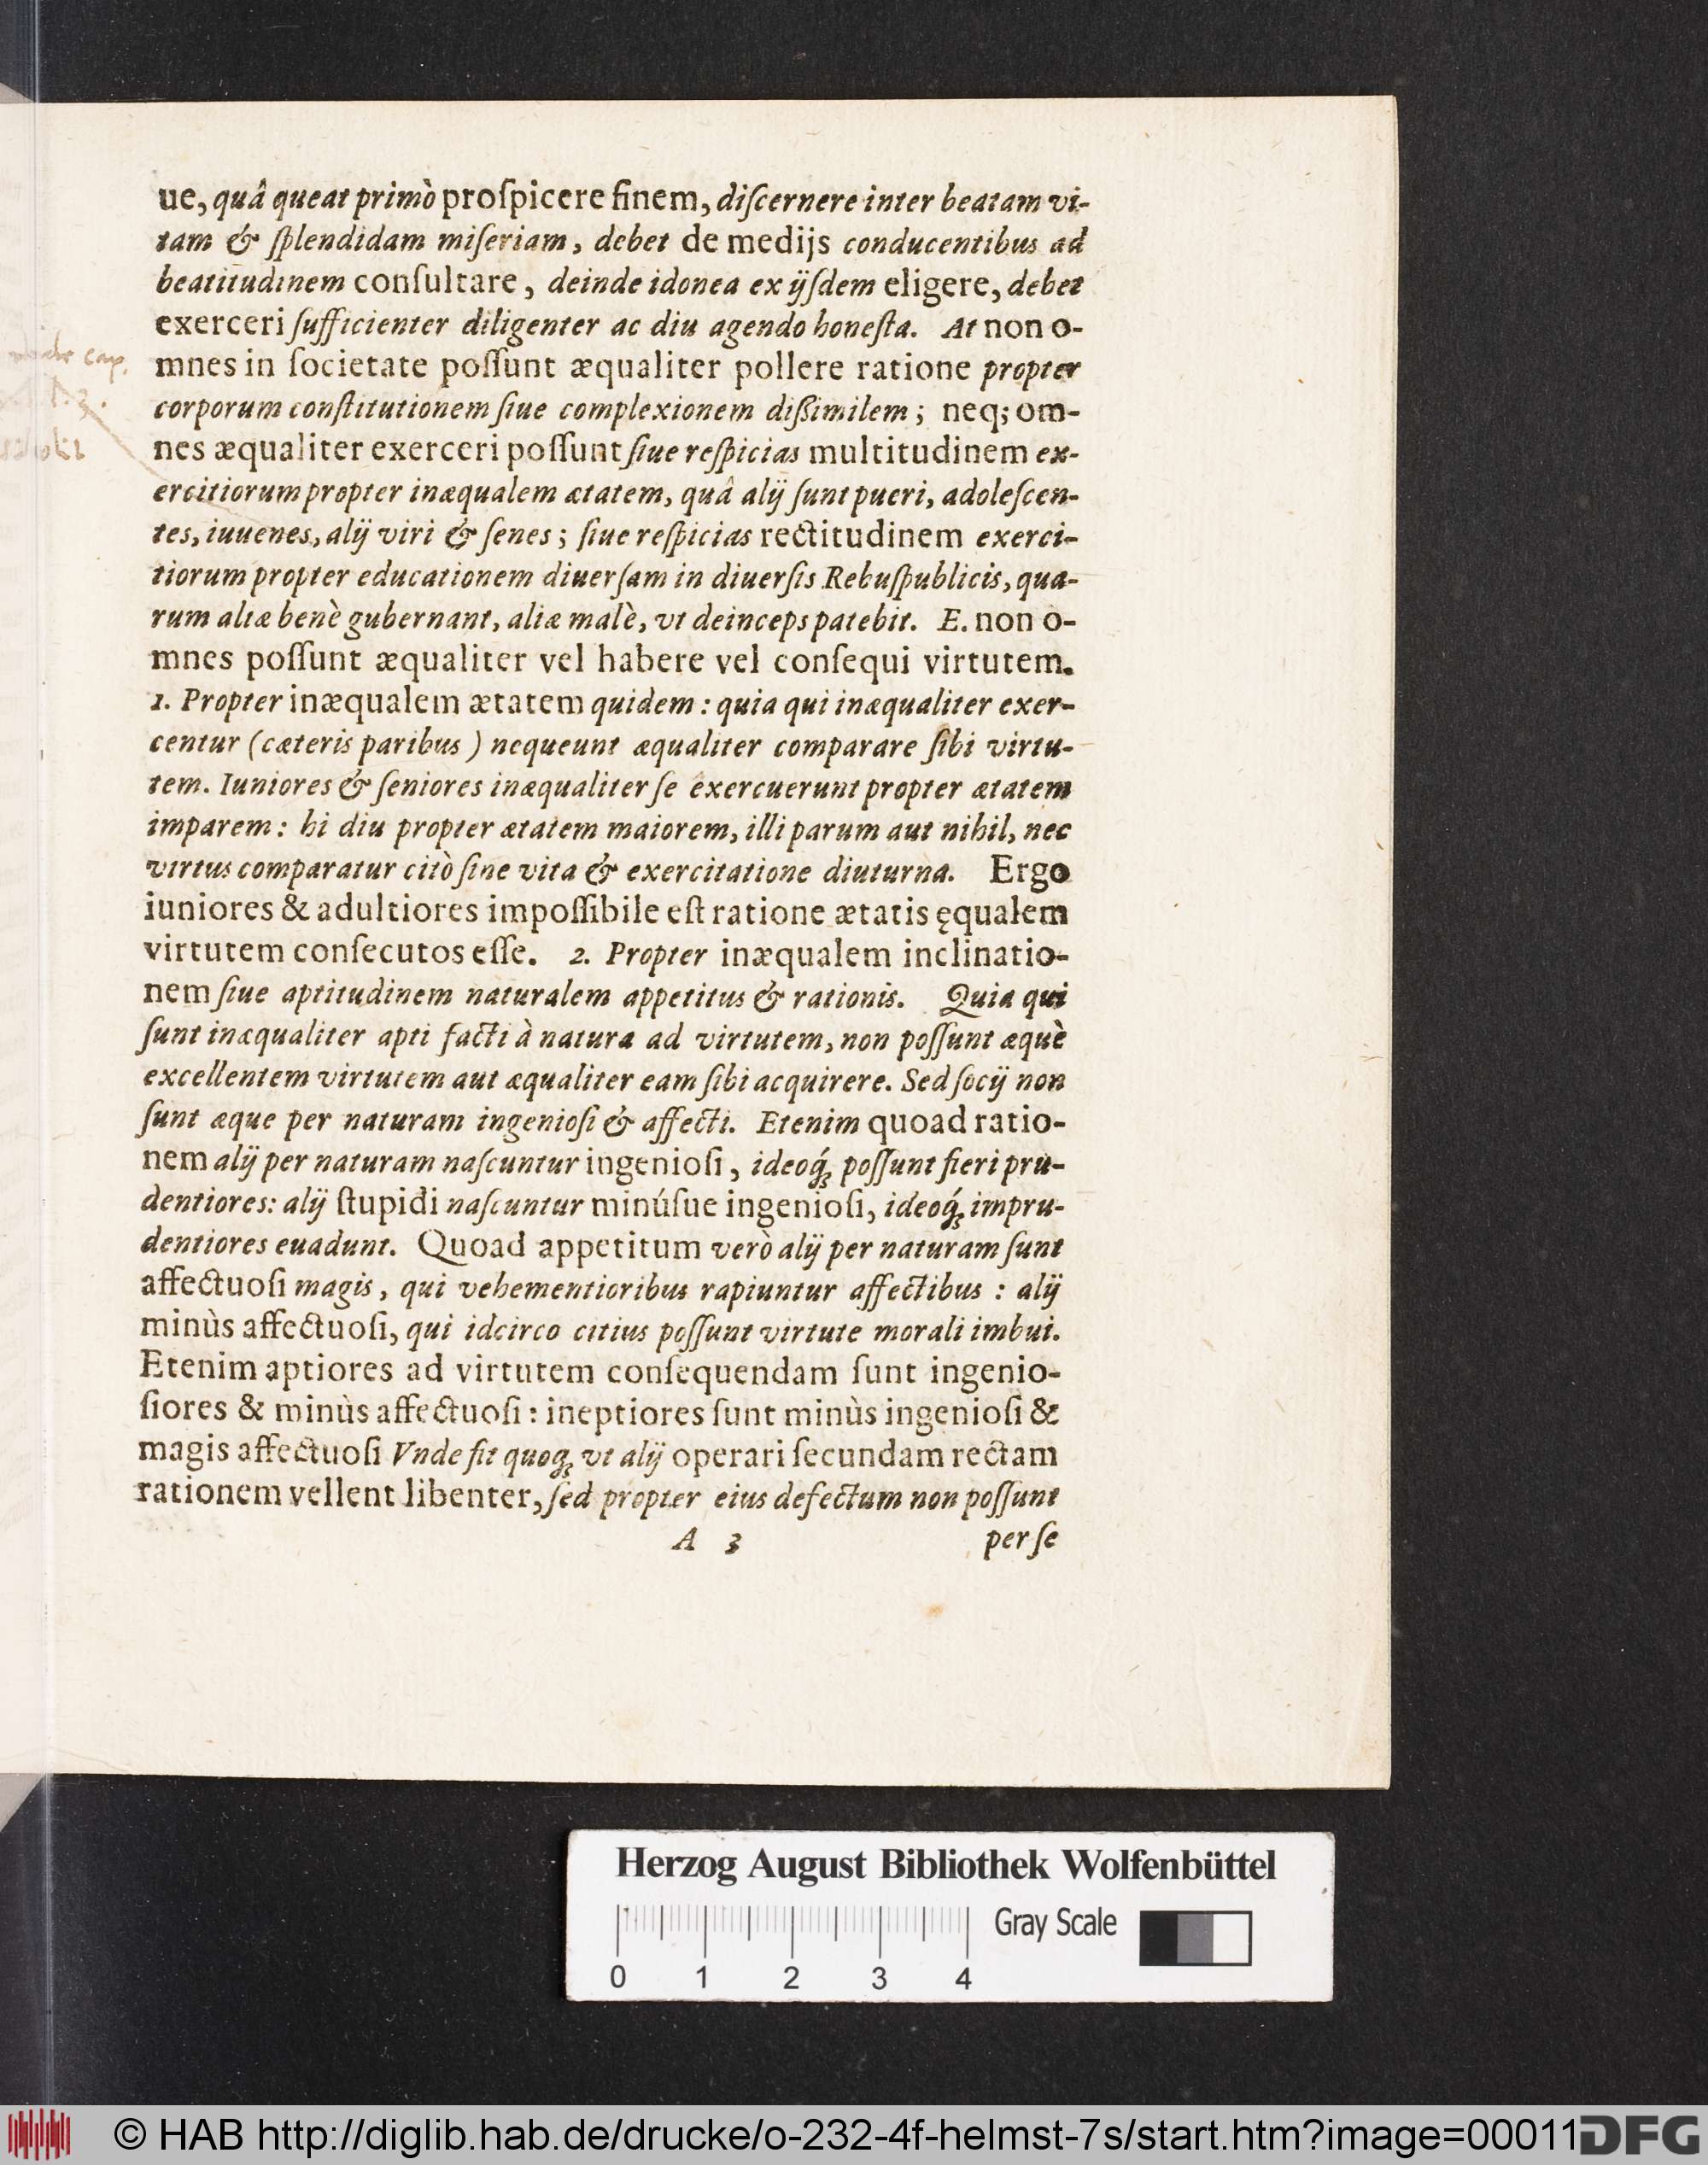 ue, quâ queat primò proſpicere finem, diſcernere inter beatam vi-
tam & ſplendidam miſeriam, debet de medijs conducentibus ad
beatitudinem conſultare, deinde idonea ex ijſdem eligere, debet
exerceri ſufficienter diligenter ac diu agendo honeſta. At non o-
mnes in ſocietate poſſunt æqualiter pollere ratione propter
corporum conſtitutionem ſiue complexionem dißimilem; neq; om-
nes æqualiter exerceri poſſunt ſiue reſpicias multitudinem ex-
ercitiorum propter inæqualem ætatem, quâ alij ſunt pueri, adoleſcen-
tes, iuuenes, alij viri & ſenes; ſiue reſpicias rectitudinem exerci-
tiorum propter educationem diuerſam in diuerſis Rebuſpublicis, qua-
rum aliæ benè gubernant, aliæ malè, vt deinceps patebit. E. non o-
mnes poſſunt æqualiter vel habere vel conſequi virtutem.
1. Propter inæqualem ætatem quidem: quia qui inæqualiter exer-
centur (cæteris paribus) nequeunt æqualiter comparare ſibi virtu-
tem. Iuniores & ſeniores inæqualiter ſe exercuerunt propter ætatem
imparem: hi diu propter ætatem maiorem, illi parum aut nihil, nec
virtus comparatur citò ſine vita & exercitatione diuturna. Ergo
iuniores & adultiores impoſſibile eſt ratione ætatis ęqualem
virtutem conſecutos eſſe. 2. Propter inæqualem inclinatio-
nem ſiue aptitudinem naturalem appetitus & rationis. Quia qui
ſunt inæqualiter apti facti à natura ad virtutem, non poſſunt æquè
excellentem virtutem aut æqualiter eam ſibi acquirere. Sed ſocij non
ſunt æque per naturam ingenioſi & affecti. Etenim quoad ratio-
nem alij per naturam naſcuntur ingenioſi, ideoq́; poſſunt fieri pru-
dentiores: alij ſtupidi naſcuntur minúſue ingenioſi, ideoq́; impru-
dentiores euadunt. Quoad appetitum verò alij per naturam ſunt
affectuoſi magis, qui vehementioribus rapiuntur affectibus: alij
minùs affectuoſi, qui idcirco citius poſſunt virtute morali imbui.
Etenim aptiores ad virtutem conſequendam ſunt ingenio-
ſiores & minùs affectuoſi: ineptiores ſunt minùs ingenioſi &
magis affectuoſi Vnde fit quoq; vt alij operari ſecundam rectam
rationem vellent libenter, ſed propter eius defectum non poſſunt
A 3 per ſe
cap.
Herzog August Bibliothek Wolfenbüttel
Gray Scale
0 1 2 3 4
© HAB http://diglib.hab.de/drucke/o-232-4f-helmst-7s/start.htm?image=00011
DFG